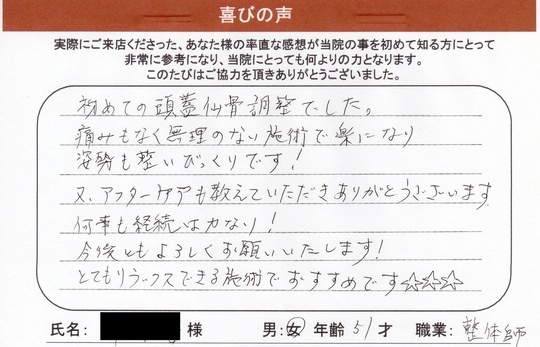 喜びの声
実際にご来店くださった、あなた様の率直な感想が当院の事を初めて知る方にとって
非常に参考になり、当院にとっても何よりの力となります。
このたびはご協力を頂きありがとうございました。
初めての頭蓋仙骨調整でした。
痛みもなく無理のない施術で楽になり
姿勢も整いびっくりです!
又、アフターケアも教えていただきありがとうございます
何事も経続は力なり!
今後ともよろしくお願いいたします!
とてもリラックスできる施術でおすすめです☆☆☆
氏名: 様 男:女 年齢 51才 職業: 整体師